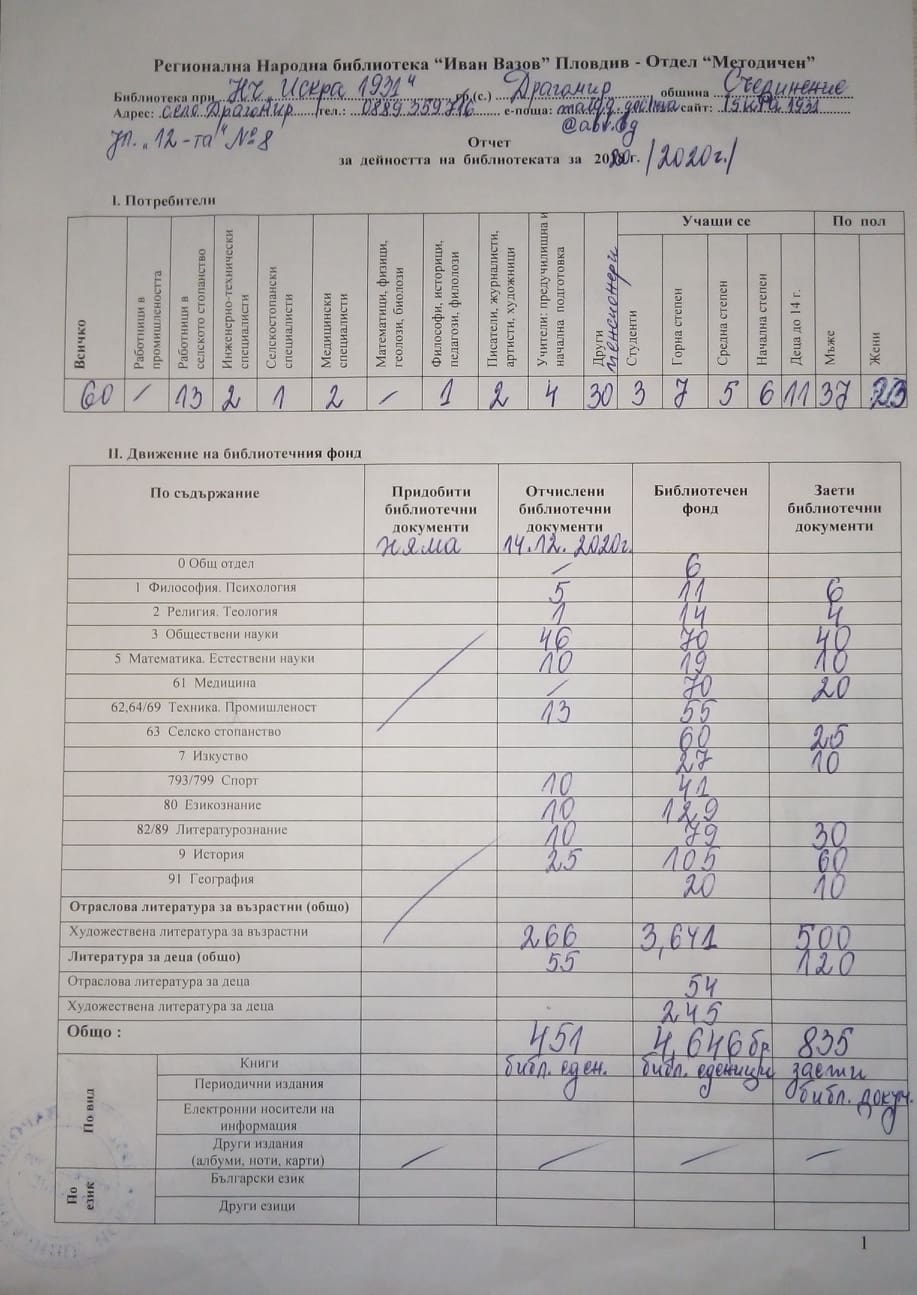 Регионална Народна библиотека “Иван Вазов” Пловдив - Отдел “Методичен”
Библиотека при НЧ „Искра 1931“ гр.(с.) Драгомир община Съединение
Адрес: село Драгомир тел.: 0889 359716 е-поща: сайт: 1931
@abv.bg
ул. „12-та“ №8
Отчет
за дейността на библиотеката за 2020г. /2020г./
I. Потребители
Всичко Работници в промишлеността Работници в селското стопанство Инженерно-технически специалисти Селскостопански специалисти Медицински специалисти Математици, физици, геолози, биолози Философи, историци, педагози, филолози Писатели, журналисти, артисти, художници Учители: предучилищна и начална подготовка Други пенсионери Учащи се По пол
Студенти Горна степен Средна степен Начална степен Деца до 14 г. Мъже Жени
60 / 13 2 1 2 / 1 2 4 30 3 7 5 6 11 37 23
II. Движение на библиотечния фонд
По съдържание Придобити библиотечни документи Отчислени библиотечни документи Библиотечен фонд Заети библиотечни документи
няма 14.12.2020г.
0 Общ отдел / 6
1 Философия. Психология 5 11 6
2 Религия. Теология 1 14 4
3 Обществени науки 46 70 40
5 Математика. Естествени науки 10 19 10
61 Медицина / 70 20
62,64/69 Техника. Промишленост 13 55
63 Селско стопанство 60 25
7 Изкуство 27 10
793/799 Спорт 10 41
80 Езикознание 10 129
82/89 Литературознание 10 79 30
9 История 25 105 60
91 География 20 10
Отраслова литература за възрастни (общо)
Художествена литература за възрастни 266 3,641 500
Литература за деца (общо) 55 120
Отраслова литература за деца 54
Художествена литература за деца 245
Общо : 451 4,646 бр 835
По вид
Книги библ. еден. библ. единици заети
Периодични издания библ. докум.
Електронни носители на
информация
Други издания
(албуми, ноти, карти) / / / /
По език
Български език
Други езици
1